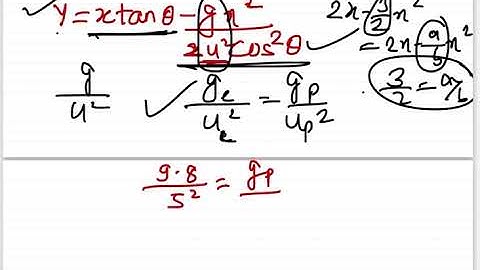 Y = x tanθ - gx² / 2u²cos²θ
2x - 3/2 x²
= 2x - a/b x²
3/2 = a/b
g/u²
g_e/u_e² = g_p/u_p²
9.8/5² = g_p